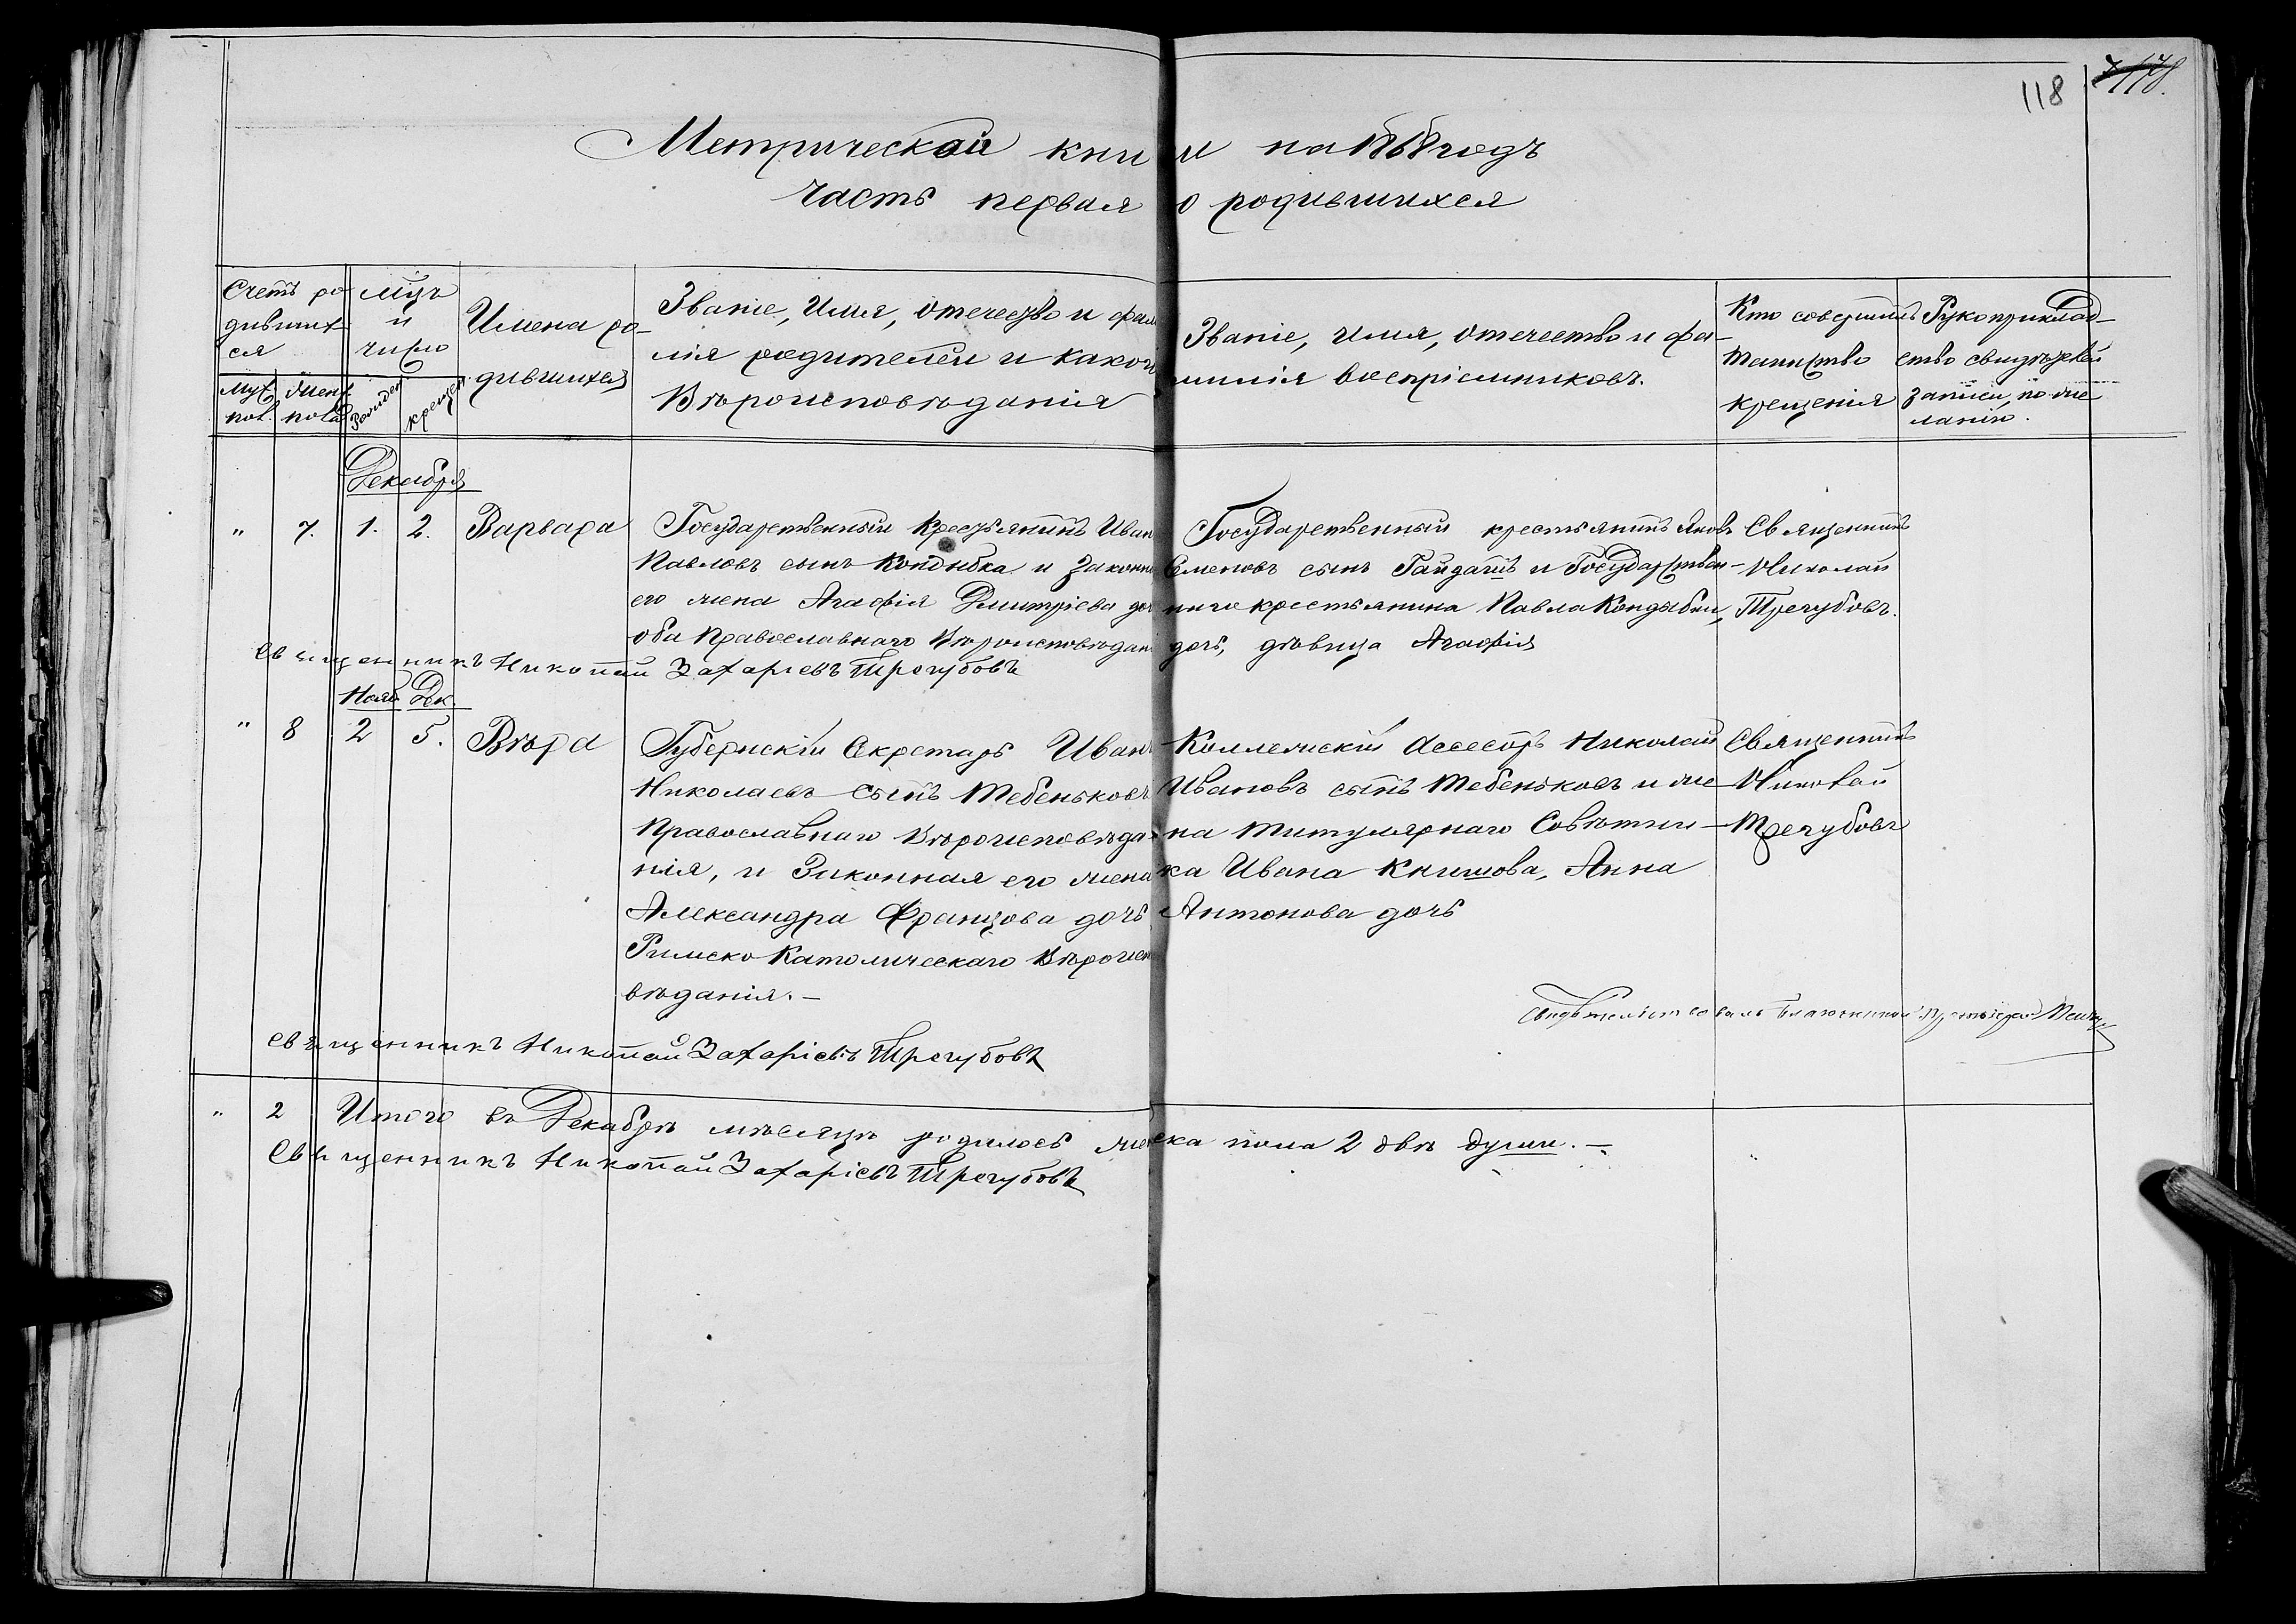 118
Метрической книги на 1868 годъ
часть первая о родившихся
Счетъ ро-
дивших
ся
Муж. пол.
Женс. пола
Мцъ
и
число
Рожден.
крещен.
Имена ро-
дившихся
Званіе, Имя, отечество и фами
лія родителей и какого
Вѣроисповѣданія
Званіе, имя, отечество и фа-
милія воспріемниковъ.
Кто совершилъ
таинство
крещенія
Рукоприклад-
ство свидѣтелей
записи, по же-
ланію.
Декабря
" 7. 1. 2. Варвара
Государственный Крестьянинъ Иван
Павловъ сынъ Кондыбка и законн
его жена Агафія Дмитріева доч
оба Православнаго Вѣроисповѣдан
Государственный крестьянинъ Яковъ
Семеновъ сынъ Гайдатъ и Государствен-
ного крестьянина Павла Кондыбки,
дочь, дѣвица Агафія
Священникъ
Николай
Трегубовъ.
Священникъ Николай Захаріевъ Трегубовъ
Нояб. Дек.
" 8 2 5. Вѣра
Губернскій Секретарь Иванъ
Николаевъ сынъ Тебеньковъ
Православнаго Вѣроисповѣда-
нія, и Законная его жена
Александра Францова дочь
Римско Католическаго Вѣроиспо
вѣданія. —
Коллежскій Ассесоръ Николай
Ивановъ сынъ Тебеньковъ и же-
на Титулярнаго Совѣтни-
ка Ивана Книшова, Анна
Антонова дочь
Священникъ
Николай
Трегубовъ
Свидѣтельствовалъ Благочинный Протоіерей
Священникъ Николай Захаріевъ Трегубовъ
" 2 Итого въ Декабрѣ мѣсяцѣ родилось женска пола 2 двѣ души. —
Священникъ Николай Захаріевъ Трегубовъ